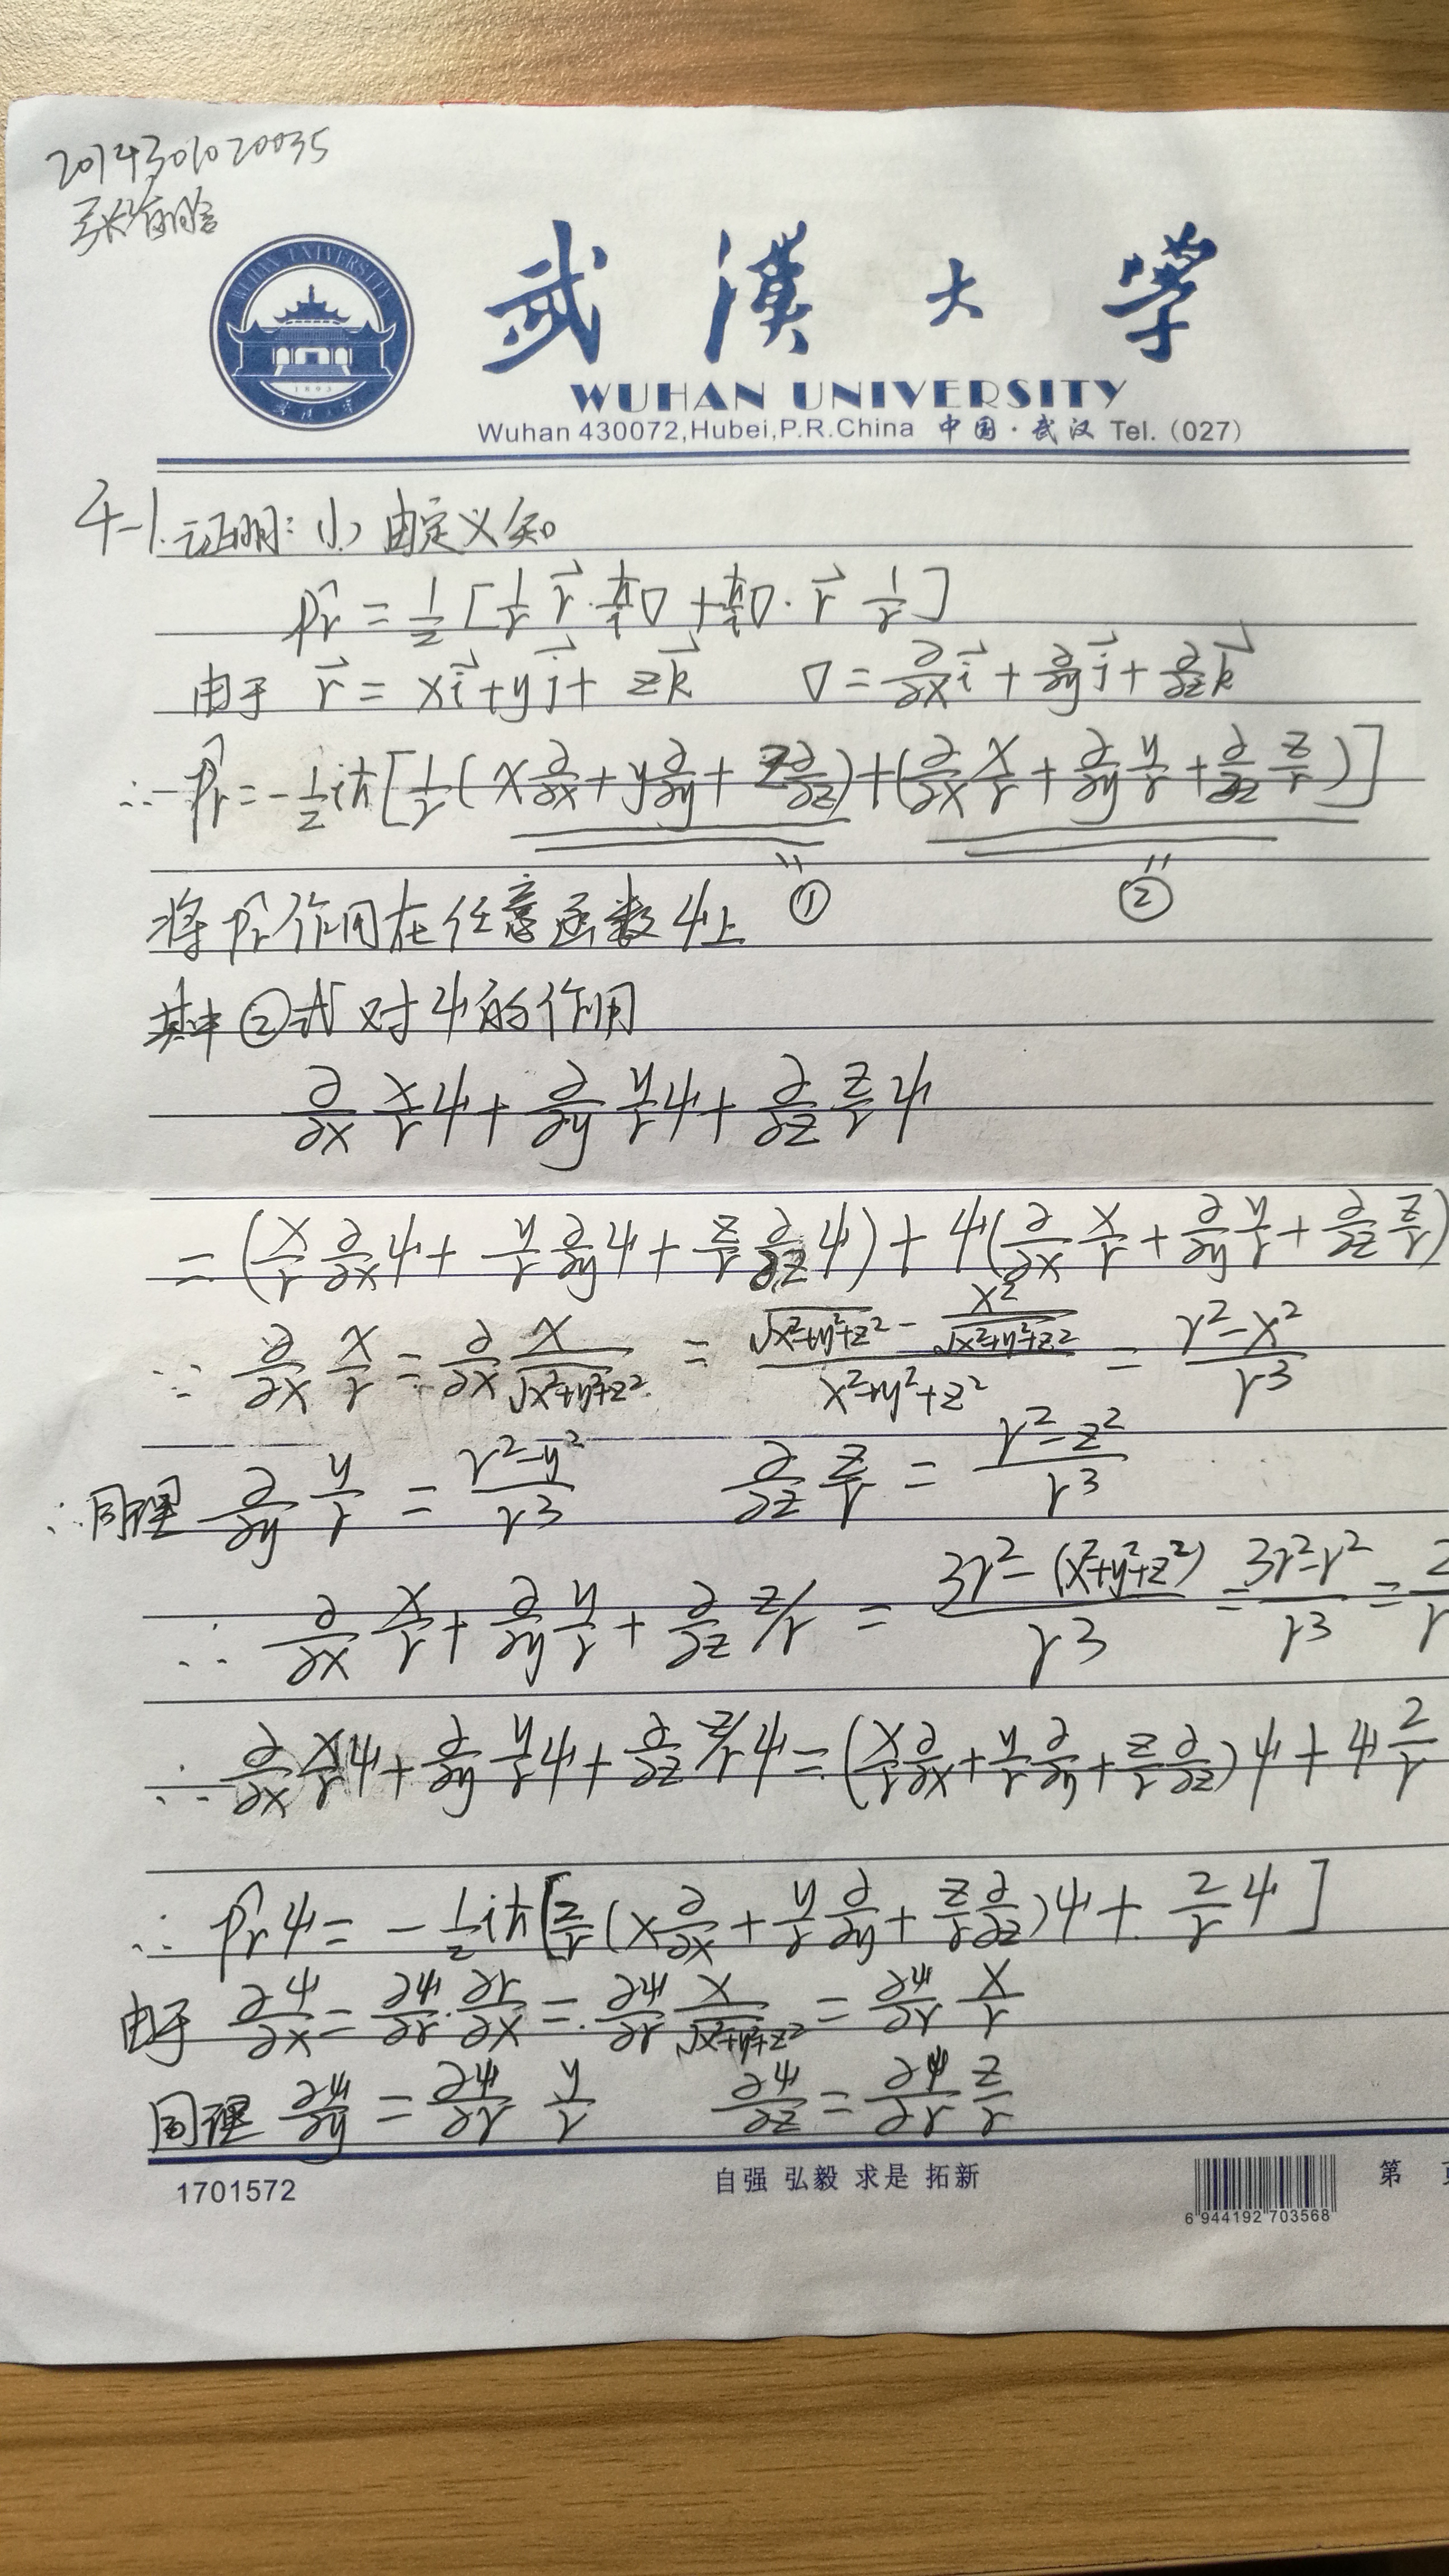 2014301020035
武漢大學
WUHAN UNIVERSITY
Wuhan 430072,Hubei,P.R.China 中国·武汉 Tel.（027）
WUHAN UNIVERSITY
1893
4-1.证明: (1) 由定义知
p̂r = 1/2 [1/r r⃗·ħ/i ∇ + ħ/i ∇·r⃗ 1/r]
由于 r⃗ = xi⃗+yj⃗+zk⃗ ∇ = ∂/∂x i⃗ + ∂/∂y j⃗ + ∂/∂z k⃗
∴ p̂r = -1/2 iħ[1/r(x∂/∂x + y∂/∂y + z∂/∂z)+(∂/∂x x/r + ∂/∂y y/r + ∂/∂z z/r)]
① ②
将p̂r作用在任意函数ψ上
其中②式对ψ的作用
∂/∂x x/r ψ + ∂/∂y y/r ψ + ∂/∂z z/r ψ
= (x/r ∂/∂x ψ + y/r ∂/∂y ψ + z/r ∂/∂z ψ) + ψ(∂/∂x x/r + ∂/∂y y/r + ∂/∂z z/r)
∵ ∂/∂x x/r = ∂/∂x x/√x²+y²+z² = (√x²+y²+z² - x²/√x²+y²+z²)/(x²+y²+z²) = (r²-x²)/r³
∴同理 ∂/∂y y/r = (r²-y²)/r³ ∂/∂z z/r = (r²-z²)/r³
∴ ∂/∂x x/r + ∂/∂y y/r + ∂/∂z z/r = (3r²-(x²+y²+z²))/r³ = (3r²-r²)/r³ = 2/r
∴ ∂/∂x x/r ψ + ∂/∂y y/r ψ + ∂/∂z z/r ψ = (x/r ∂/∂x + y/r ∂/∂y + z/r ∂/∂z)ψ + ψ 2/r
∴ p̂rψ = -1/2 iħ[2/r(x∂/∂x + y/r ∂/∂y + z/r ∂/∂z)ψ + 2/r ψ]
由于 ∂ψ/∂x = ∂ψ/∂r·∂r/∂x = ∂ψ/∂r x/√x²+y²+z² = ∂ψ/∂r x/r
同理 ∂ψ/∂y = ∂ψ/∂r y/r ∂ψ/∂z = ∂ψ/∂r z/r
1701572
自强 弘毅 求是 拓新
6 944192 703568
第